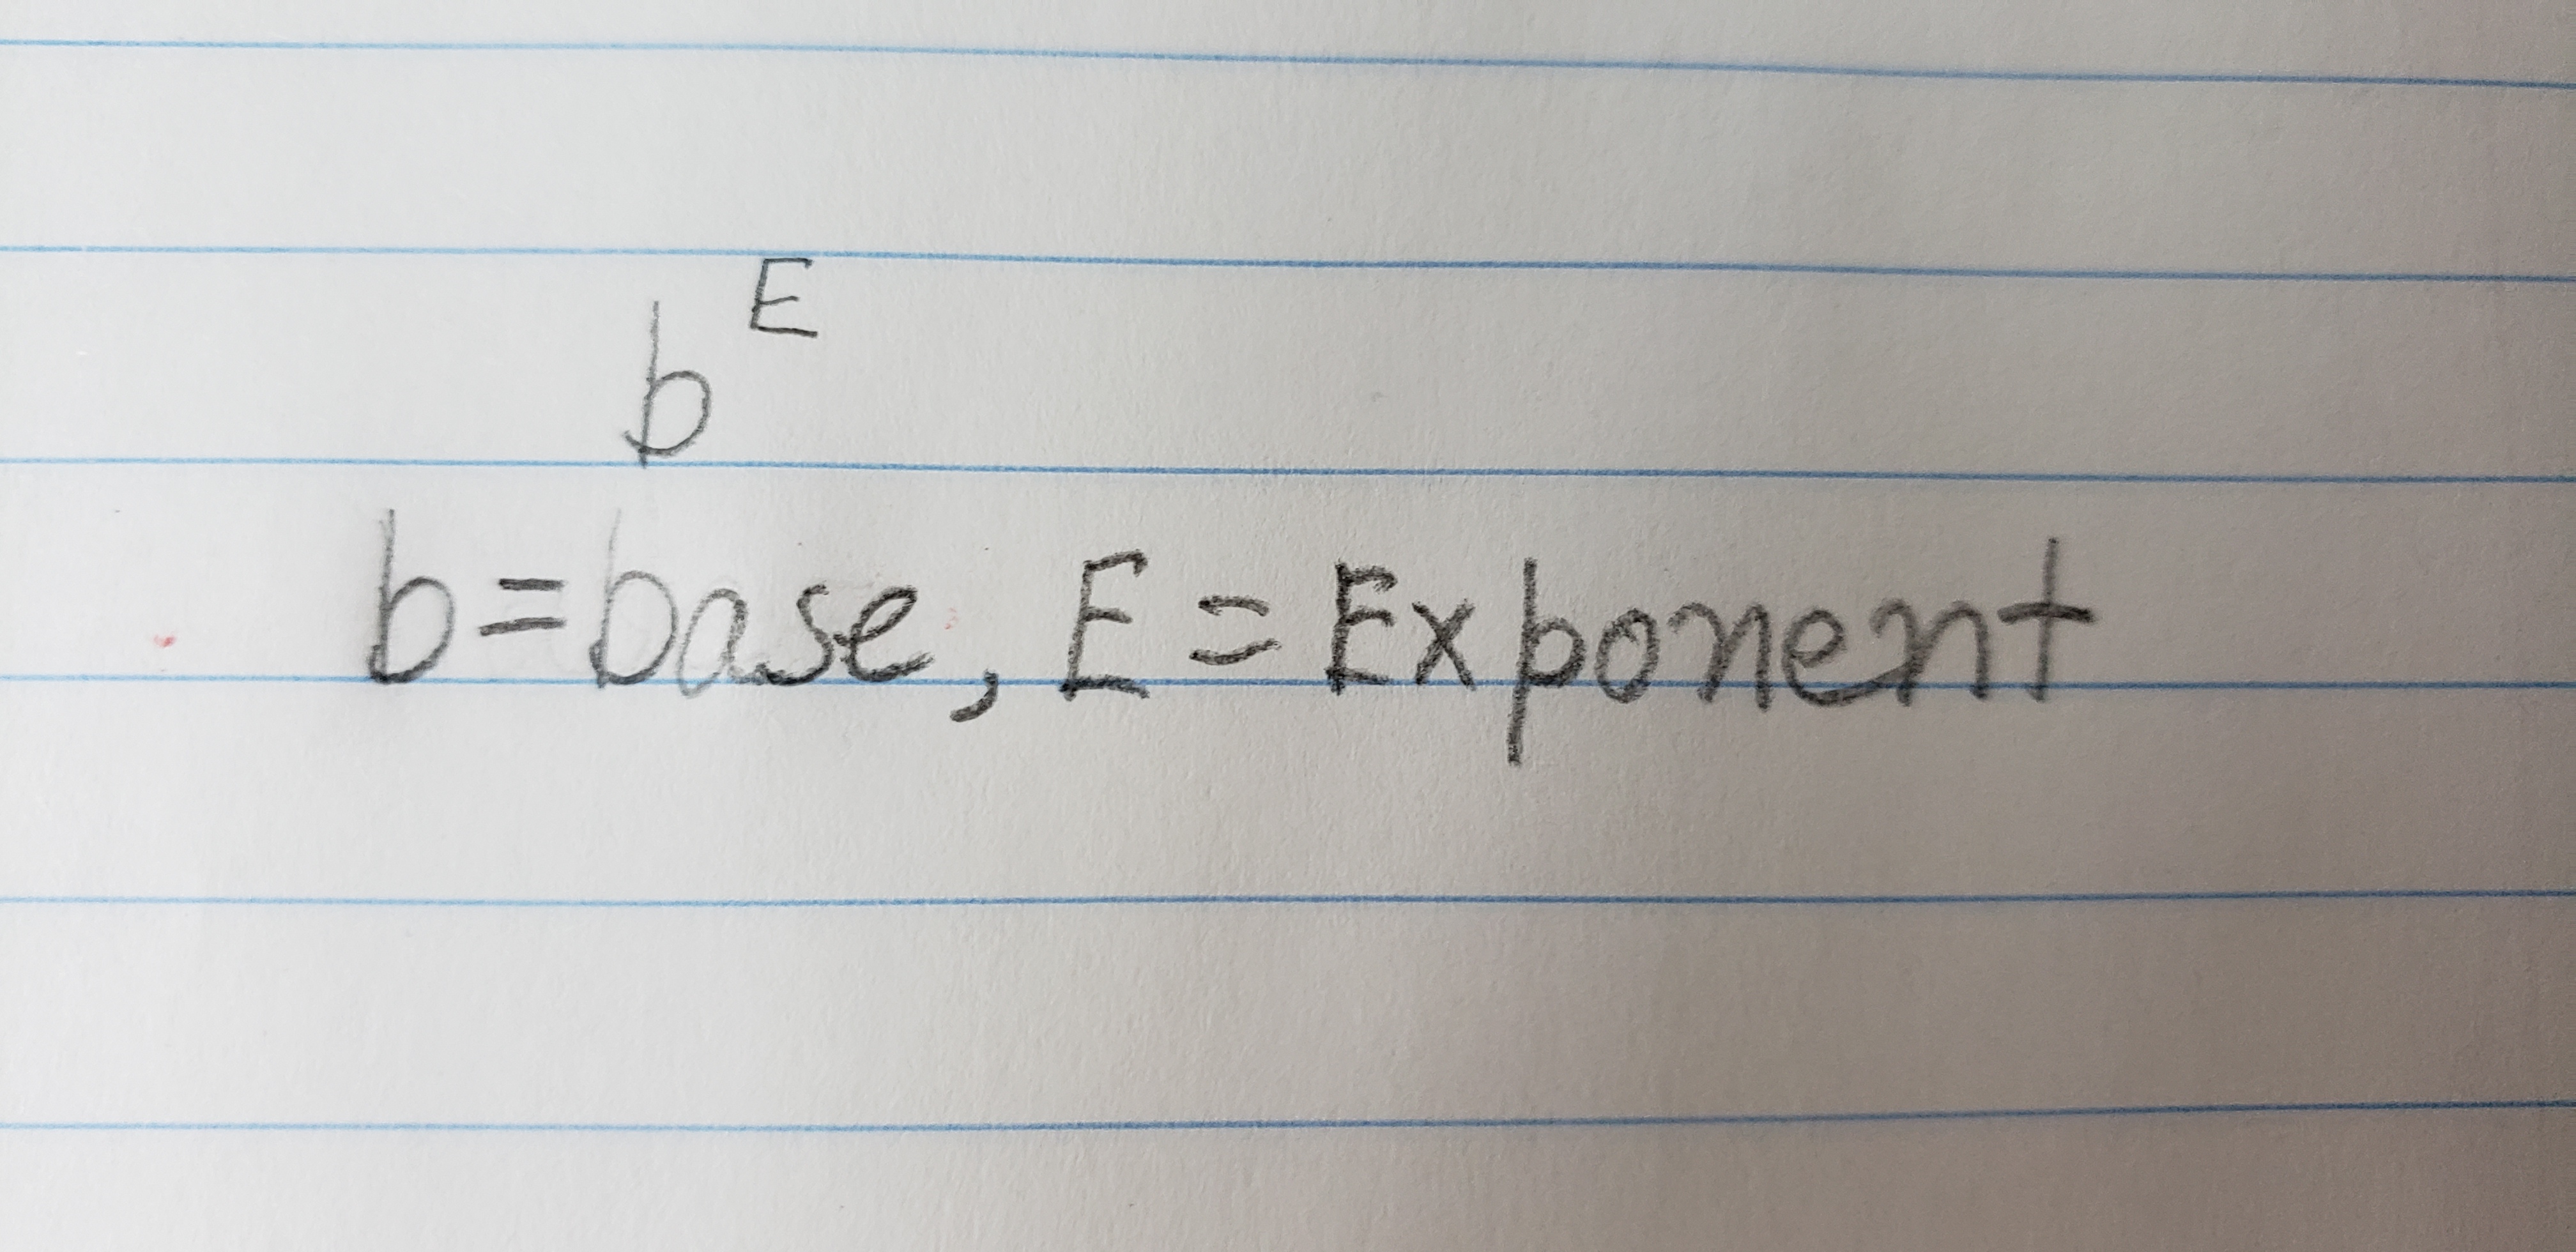 b^E
b=base, E = Exponent